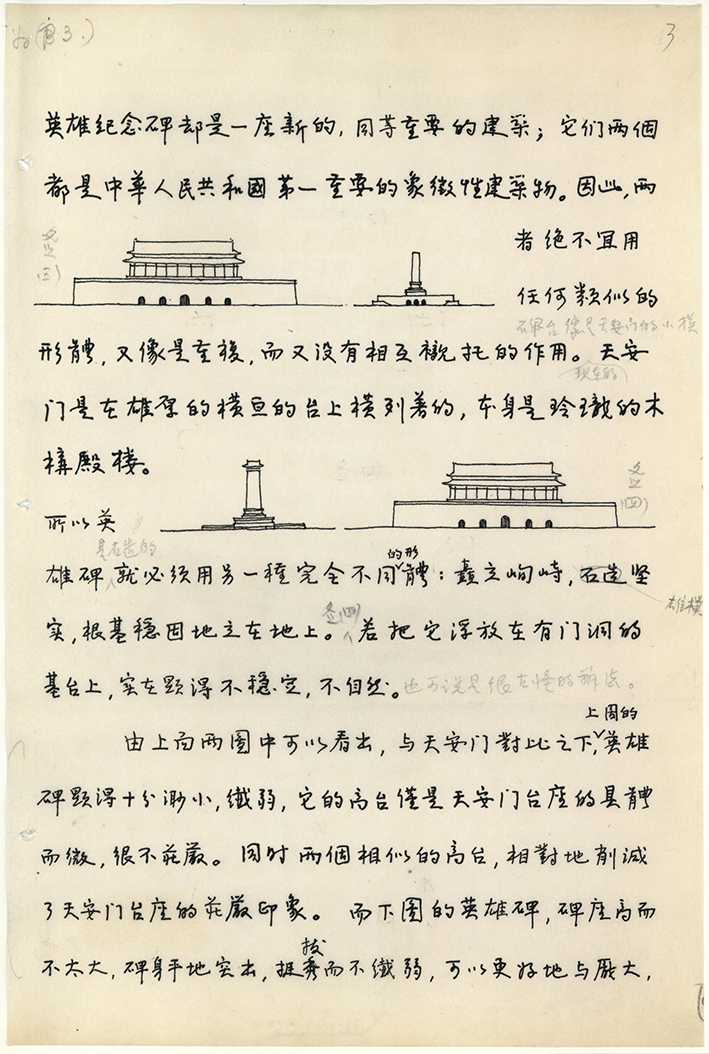 3
英雄纪念碑却是一座新的,同等重要的建築;它们两個
都是中華人民共和國第一重要的象徵性建築物。因此,两
者绝不宜用
任何類似的
碑台像是天安门的小模
形體,又像是重複,而又没有相互襯托的作用。天安
现在的
门是在雄厚的横亘的台上横列着的,本身是玲瓏的木
構殿楼。
所以英
是石造的
的形
雄碑就必须用另一種完全不同體:矗立峋峙,石造坚
雄模
实,根基穩固地立在地上。若把它浮放在有门洞的
基台上,实在顯得不穩定,不自然。也可说是很古怪的辦法。
上图的
由上面两圖中可以看出,与天安门對比之下,英雄
碑顯得十分渺小,纖弱,它的高台僅是天安门台座的具體
而微,很不莊嚴。同时两個相似的高台,相對地削减
了天安门台座的莊嚴印象。而下圖的英雄碑,碑座高而
拔
不太大,碑身平地突出,挺秀而不纖弱,可以更好地与厖大,